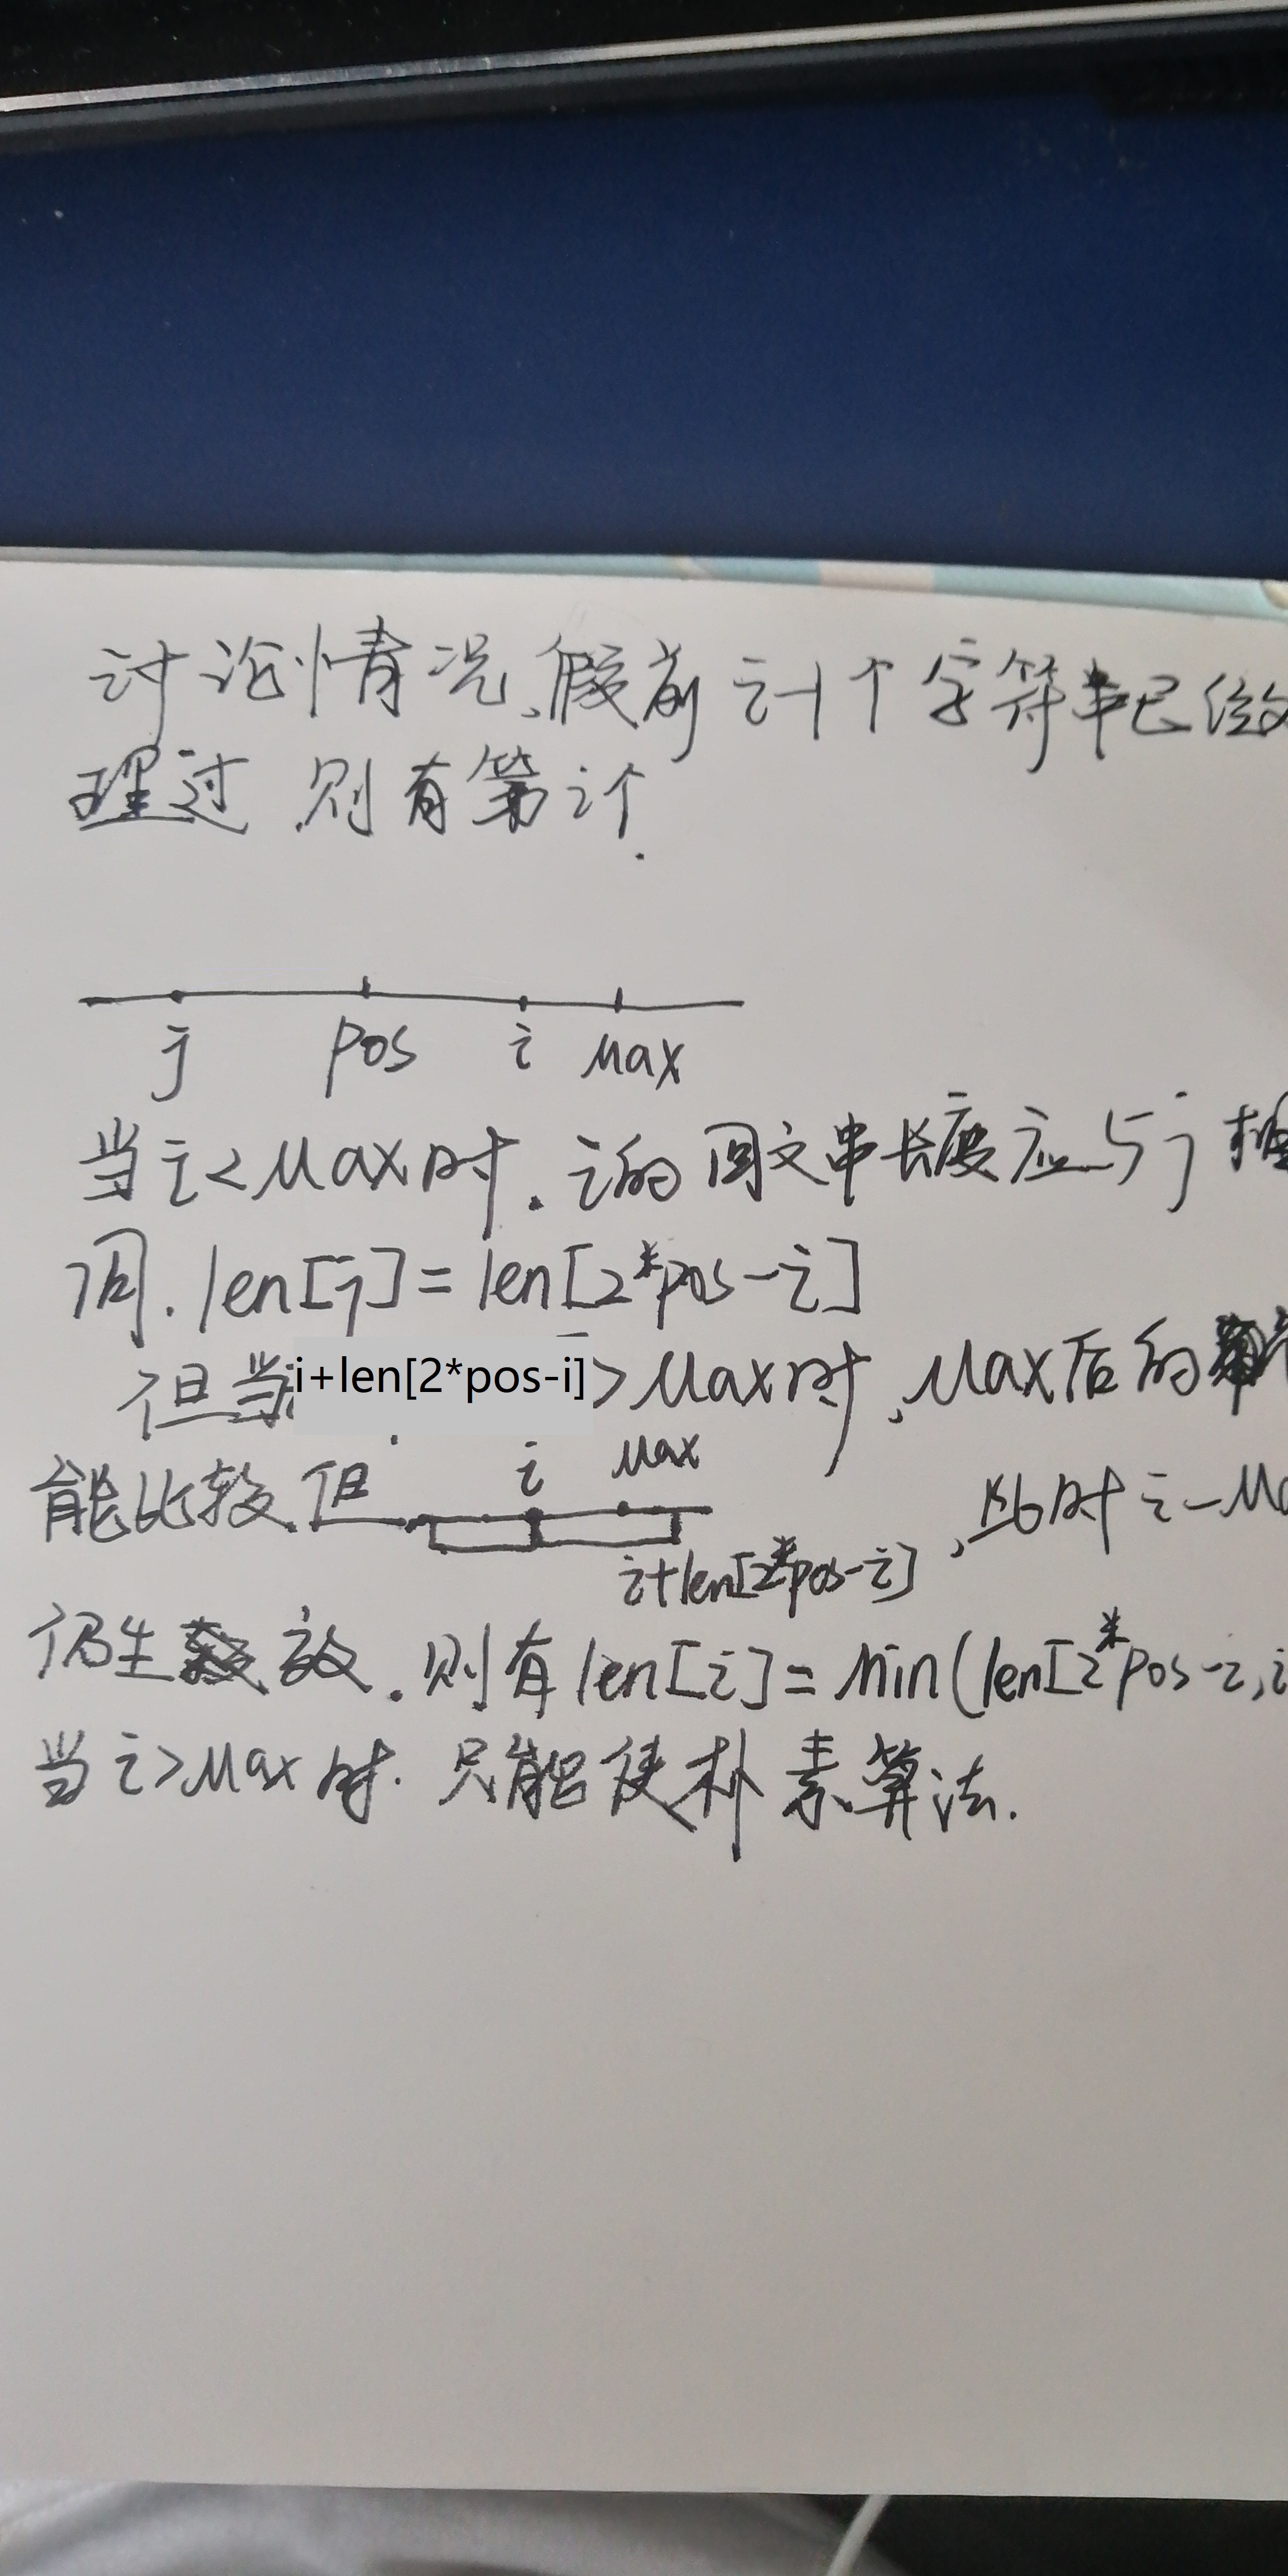 讨论情况,假设前i-1个字符串已经处
理过,则有第i个.
j pos i Max
当i<Max时.i的回文串长度应与j相
同.len[j]=len[2*pos-i]
但当i+len[2*pos-i]>Max时,Max后的
能比较.但
i Max
,此时i-Ma
i+len[2*pos-i]
仍生效.则有len[i]=min(len[2*pos-i,i
当i>Max时.只能使朴素算法.